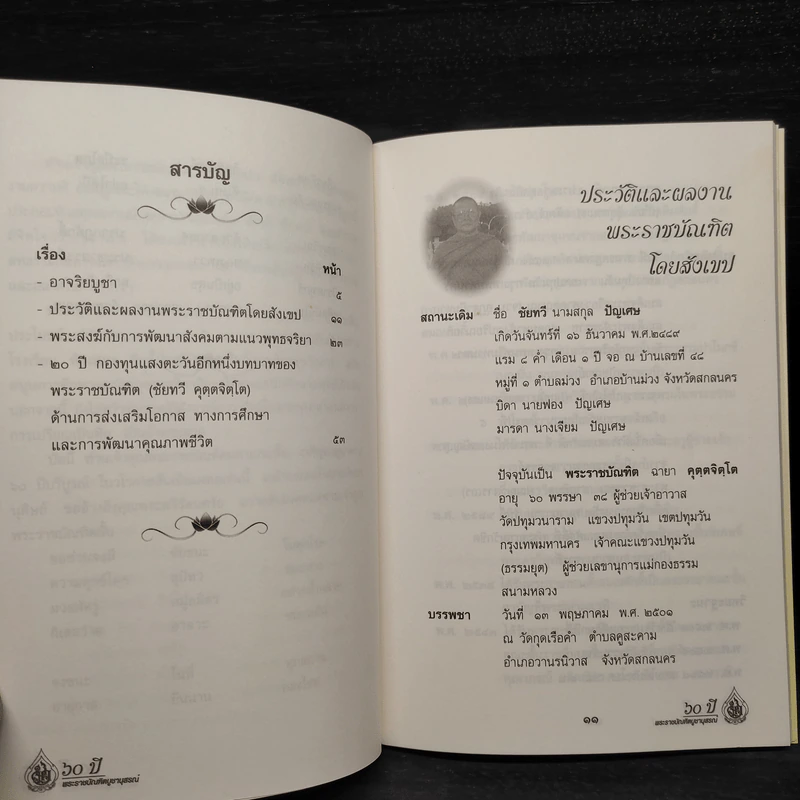 สารบัญ
เรื่อง
หน้า
- อาจริยบูชา ๕
- ประวัติและผลงานพระราชบัณฑิตโดยสังเขป ๑๑
- พระสงฆ์กับการพัฒนาสังคมตามแนวพุทธจริยา ๒๓
- ๒๐ ปี กองทุนแสงตะวันอีกหนึ่งบทบาทของ
พระราชบัณฑิต (ชัยทวี คุตฺตจิตฺโต)
ด้านการส่งเสริมโอกาส ทางการศึกษา
และการพัฒนาคุณภาพชีวิต ๕๓
๖๐ ปี
พระราชบัณฑิตบูชานุสรณ์
ประวัติและผลงาน
พระราชบัณฑิต
โดยสังเขป
สถานะเดิม ชื่อ ชัยทวี นามสกุล ปัญเศษ
เกิดวันจันทร์ที่ ๑๖ ธันวาคม พ.ศ.๒๔๘๙
แรม ๘ ค่ำ เดือน ๑ ปี จอ ณ บ้านเลขที่ ๔๘
หมู่ที่ ๑ ตำบลม่วง อำเภอบ้านม่วง จังหวัดสกลนคร
บิดา นายฟอง ปัญเศษ
มารดา นางเจียม ปัญเศษ
ปัจจุบันเป็น พระราชบัณฑิต ฉายา คุตฺตจิตฺโต
อายุ ๖๐ พรรษา ๓๘ ผู้ช่วยเจ้าอาวาส
วัดปทุมวนาราม แขวงปทุมวัน เขตปทุมวัน
กรุงเทพมหานคร เจ้าคณะแขวงปทุมวัน
(ธรรมยุต) ผู้ช่วยเลขานุการแม่กองธรรม
สนามหลวง
บรรพชา วันที่ ๑๓ พฤษภาคม พ.ศ. ๒๕๐๑
ณ วัดกุดเรือคำ ตำบลคูสะคาม
อำเภอวานรนิวาส จังหวัดสกลนคร
๑๑
๖๐ ปี
พระราชบัณฑิตบูชานุสรณ์